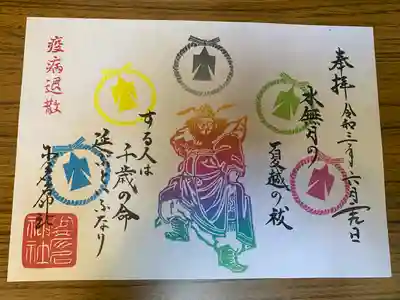 奉拝
令和
六月
水無月の
夏越の祓
する人は
千歳の命
延ぶといふなり
疫病退散